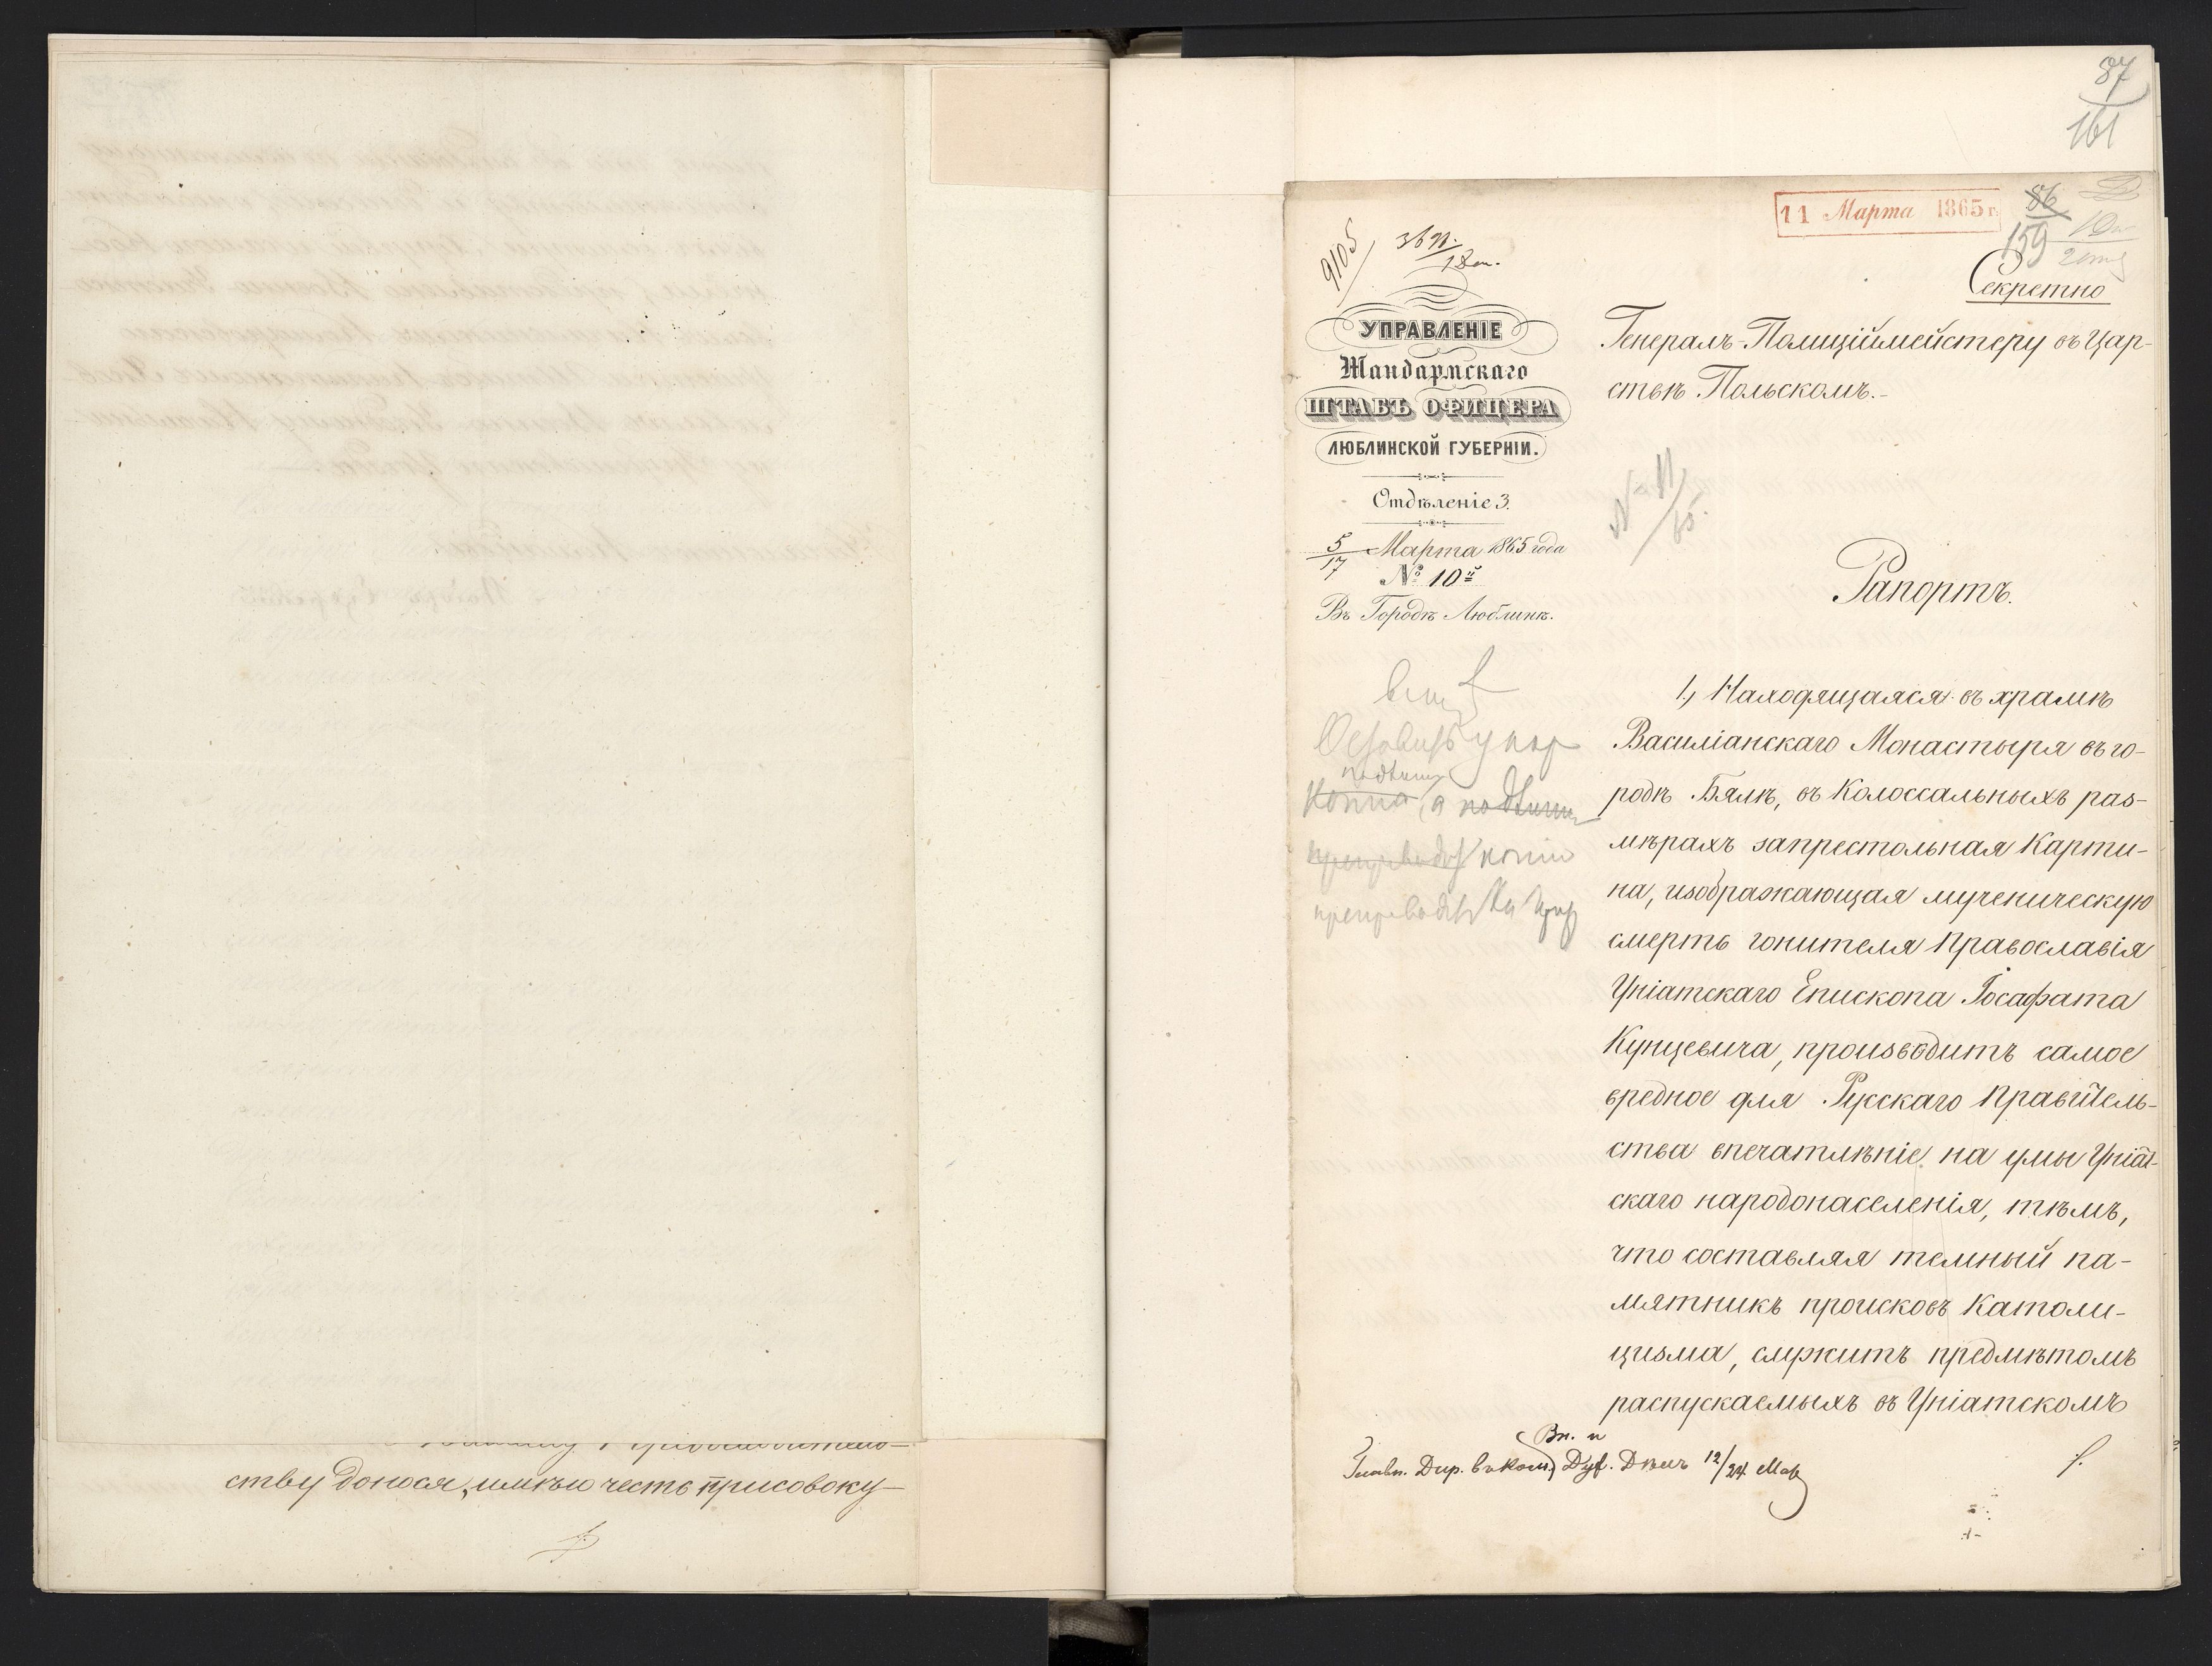 ству донося, имѣю честь присовоку-
87
161
11 Марта 1865 г.
86
159
9105
Секретно
УПРАВЛЕНІЕ
Жандармскаго
ШТАБЪ ОФИЦЕРА
ЛЮБЛИНСКОЙ ГУБЕРНІИ.
Отдѣленіе 3.
5/17 Марта 1865 года
№ 10
Въ Городѣ Люблинѣ.
Генералъ-Полиціймейстеру въ Цар-
ствѣ Польскомъ.-
№ 11/65.
Рапортъ.
1, Находящаяся въ храмѣ
Василіанскаго Монастыря въ го-
родѣ Бялѣ, въ колоссальныхъ раз-
мѣрахъ запрестольная Карти-
на, изображающая мученическую
смерть гонителя Православія
Уніатскаго Епископа Іосафата
Кунцевича, производитъ самое
вредное для Русскаго Правитель-
ства впечатлѣніе на умы Уніат-
скаго народонаселенія, тѣмъ,
что составляя темный па-
мятникъ происковъ Католи-
цизма, служитъ предмѣтомъ
распускаемыхъ въ Уніатскомъ
копію
Вн. и
Главн. Дир. въ Ком. Дух. Дѣлъ 12/24 Мар